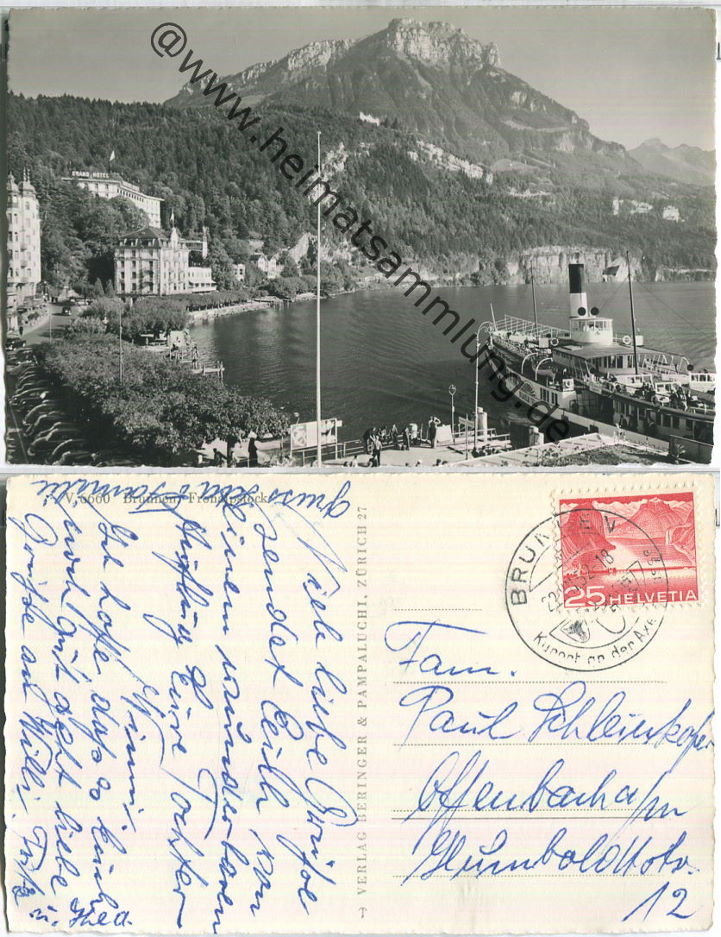 GRAND HOTEL
@www.heimatsammlung.de
V 6660 Brunnen, Fronalpstock
VERLAG BERINGER & PAMPALUCHI, ZÜRICH 27
BRUNNEN
Kurort an der Axe
25 HELVETIA
Fam.
Paul Schleinkofer
Offenbach a/m
Humboldtstr.
12
Viele liebe Grüße
sendet Euch von
einem wunderbaren
Ausflug Eure Tochter
Minni
Ich hoffe, dass es Euch
noch gut geht liebe
Grüße an Willi, Fritz
u. Thea
gruss